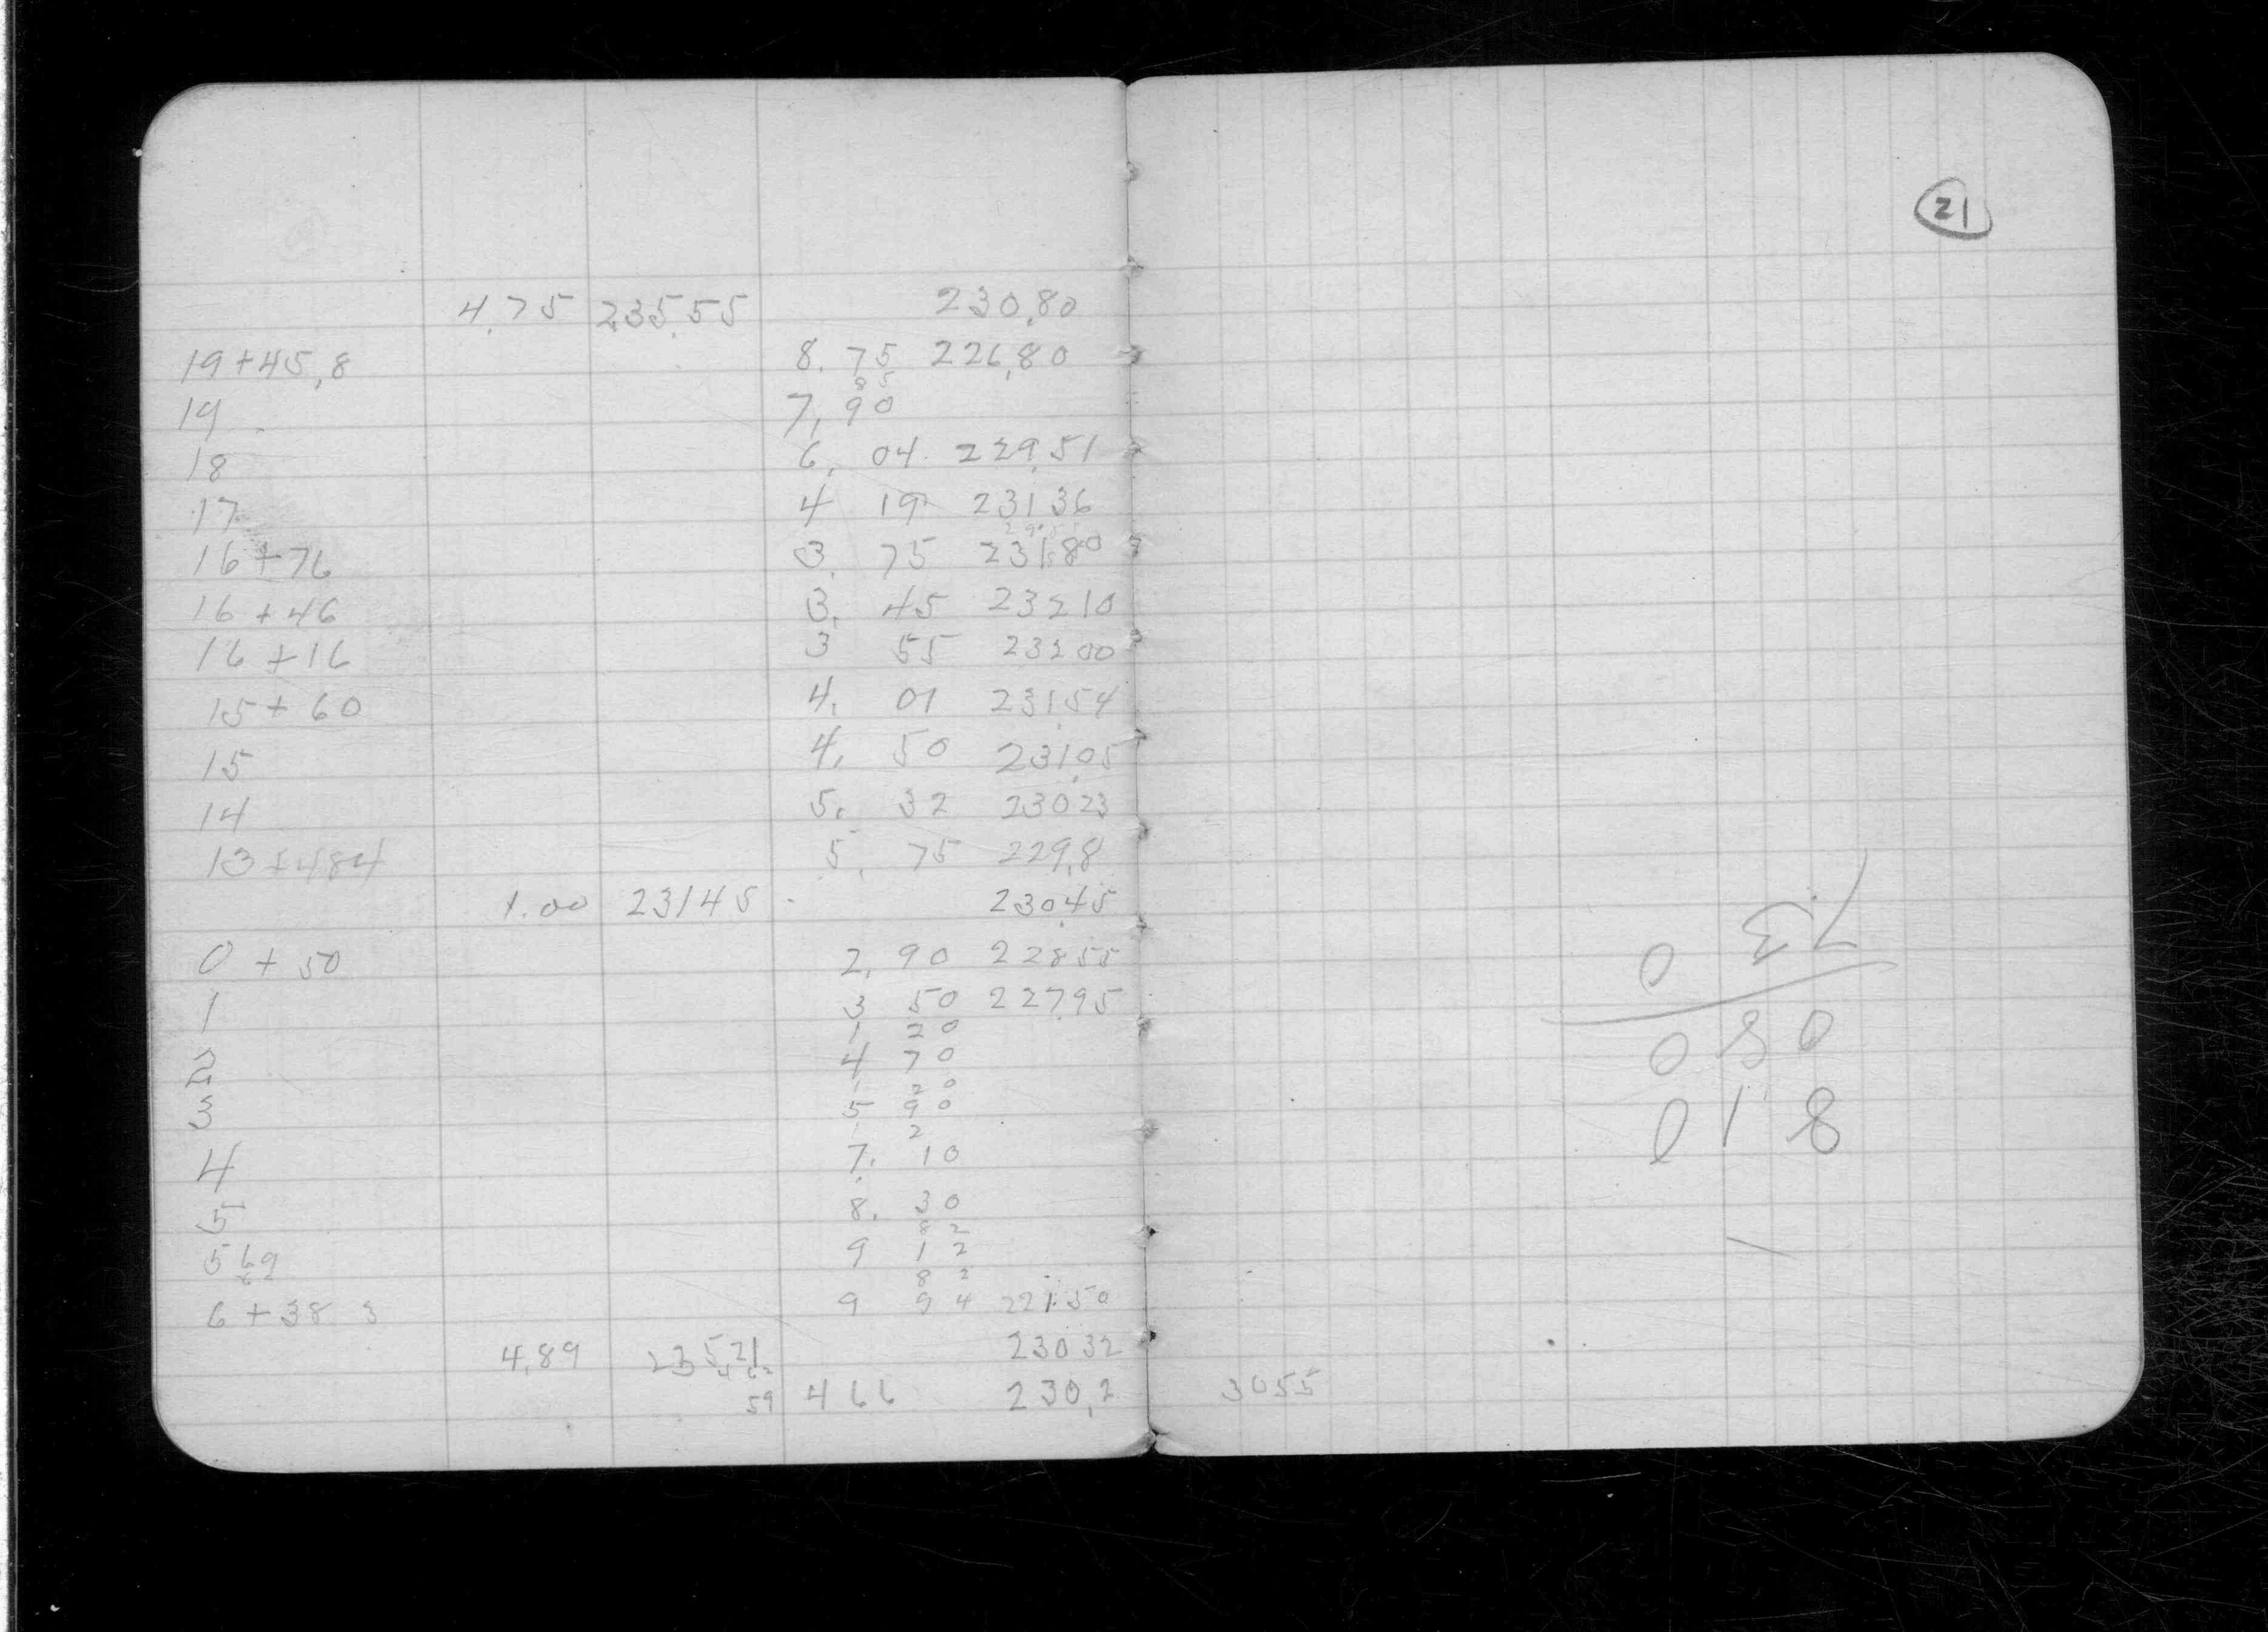 21
4.75 235.55 230.80
19+45.8 8.75 226.80
85
19 7.90
18 6.04 229.51
17 4 19 231 36
16+76 3.75 231.80
16+46 3.45 232 10
16+16 3 55 232 00
15+60 4.01 231.54
15 4.50 231.05
14 5.32 230 23
13+484 5.75 229.8
1.00 231 45 230.45
0+50 2.90 228 55
1 3 50 227.95
1 20
2 4 70
1 20
3 5 90
1 2
4 7.10
5 8.30
82
5 69 9 12
8 2
6+38 3 9 94 221.50
4.89 235.21 230 32
59 4 66 230.2 3055
0
080
018